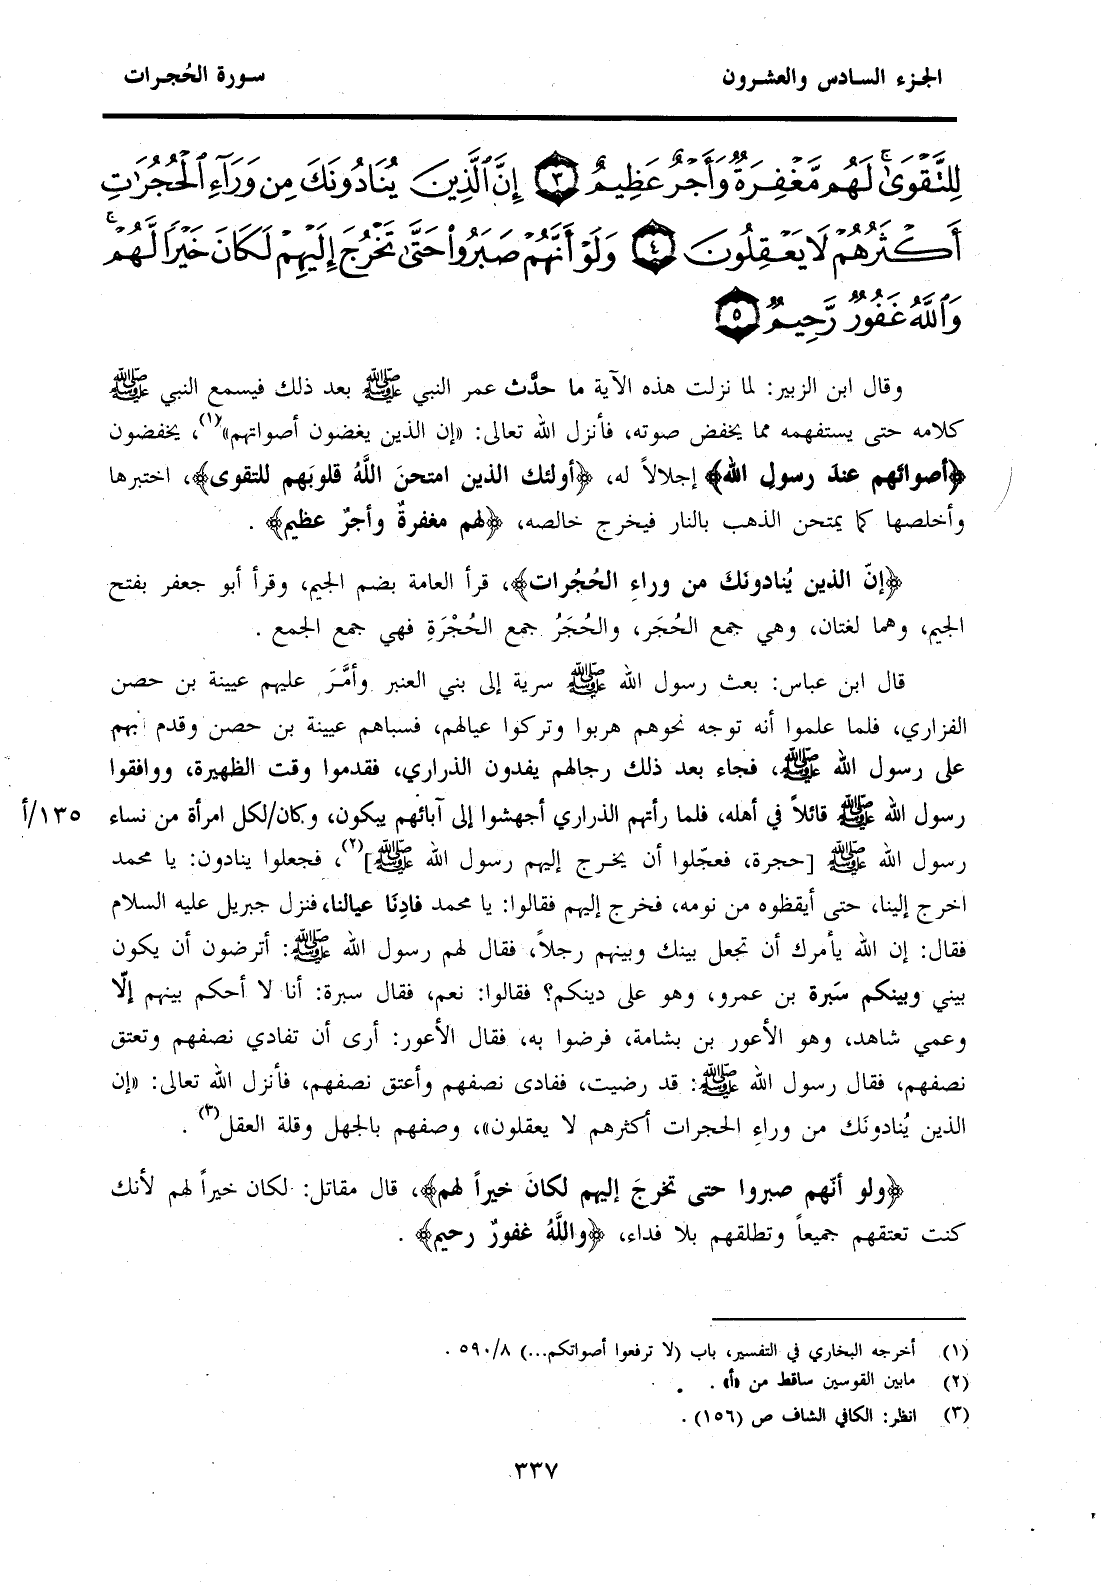 الجزء السادس والعشرون
سورة الحُجرات
لِلتَّقْوَىٰ لَهُم مَّغْفِرَةٌ وَأَجْرٌ عَظِيمٌ ٣ إِنَّ الَّذِينَ يُنَادُونَكَ مِن وَرَآءِ ٱلْحُجُرَٰتِ
أَكْثَرُهُمْ لَا يَعْقِلُونَ ٤ وَلَوْ أَنَّهُمْ صَبَرُوا۟ حَتَّىٰ تَخْرُجَ إِلَيْهِمْ لَكَانَ خَيْرًا لَّهُمْ
وَٱللَّهُ غَفُورٌ رَّحِيمٌ ٥
وقال ابن الزبير: لما نزلت هذه الآية ما حدَّث عمر النبي ﷺ بعد ذلك فيسمع النبي ﷺ
كلامه حتى يستفهمه مما يخفض صوته، فأنزل الله تعالى: «إن الذين يغضون أصواتهم»(١)، يخفضون
﴿أصواتهم عندَ رسولِ الله﴾ إجلالاً له، ﴿أولئك الذين امتحنَ اللَّهُ قلوبَهم للتقوى﴾، اختبرها
وأخلصها كما يمتحن الذهب بالنار فيخرج خالصه، ﴿لهم مغفرةٌ وأجرٌ عظيم﴾ .
﴿إنّ الذين يُنادونَكَ من وراءِ الحُجُرات﴾، قرأ العامة بضم الجيم، وقرأ أبو جعفر بفتح
الجيم، وهما لغتان، وهي جمع الحُجَر، والحُجَرُ جمع الحُجْرَةِ فهي جمع الجمع .
قال ابن عباس: بعث رسول الله ﷺ سرية إلى بني العنبر وأمَّرَ عليهم عيينة بن حصن
الفزاري، فلما علموا أنه توجه نحوهم هربوا وتركوا عيالهم، فسباهم عيينة بن حصن وقدم بهم
على رسول الله ﷺ، فجاء بعد ذلك رجالهم يفدون الذراري، فقدموا وقت الظهيرة، ووافقوا
رسول الله ﷺ قائلاً في أهله، فلما رأتهم الذراري أجهشوا إلى آبائهم يبكون، وكان/لكل امرأة من نساء ١٣٥/أ
رسول الله ﷺ [حجرة، فعجّلوا أن يخرج إليهم رسول الله ﷺ](٢)، فجعلوا ينادون: يا محمد
اخرج إلينا، حتى أيقظوه من نومه، فخرج إليهم فقالوا: يا محمد فادِنَا عيالنا، فنزل جبريل عليه السلام
فقال: إن الله يأمرك أن تجعل بينك وبينهم رجلاً، فقال لهم رسول الله ﷺ: أترضون أن يكون
بيني وبينكم سَبرة بن عمرو، وهو على دينكم؟ فقالوا: نعم، فقال سبرة: أنا لا أحكم بينهم إلّا
وعمي شاهد، وهو الأعور بن بشامة، فرضوا به، فقال الأعور: أرى أن تفادي نصفهم وتعتق
نصفهم، فقال رسول الله ﷺ: قد رضيت، ففادى نصفهم وأعتق نصفهم، فأنزل الله تعالى: «إن
الذين يُنادونَك من وراءِ الحجرات أكثرهم لا يعقلون»، وصفهم بالجهل وقلة العقل(٣) .
﴿ولو أنّهم صبروا حتى تخرجَ إليهم لكانَ خيراً لهم﴾، قال مقاتل: لكان خيراً لهم لأنك
كنت تعتقهم جميعاً وتطلقهم بلا فداء، ﴿واللَّهُ غفورٌ رحيم﴾ .
(١) أخرجه البخاري في التفسير، باب (لا ترفعوا أصواتكم...) ٥٩٠/٨ .
(٢) مابين القوسين ساقط من «أ» .
(٣) انظر: الكافي الشاف ص (١٥٦) .
٣٣٧